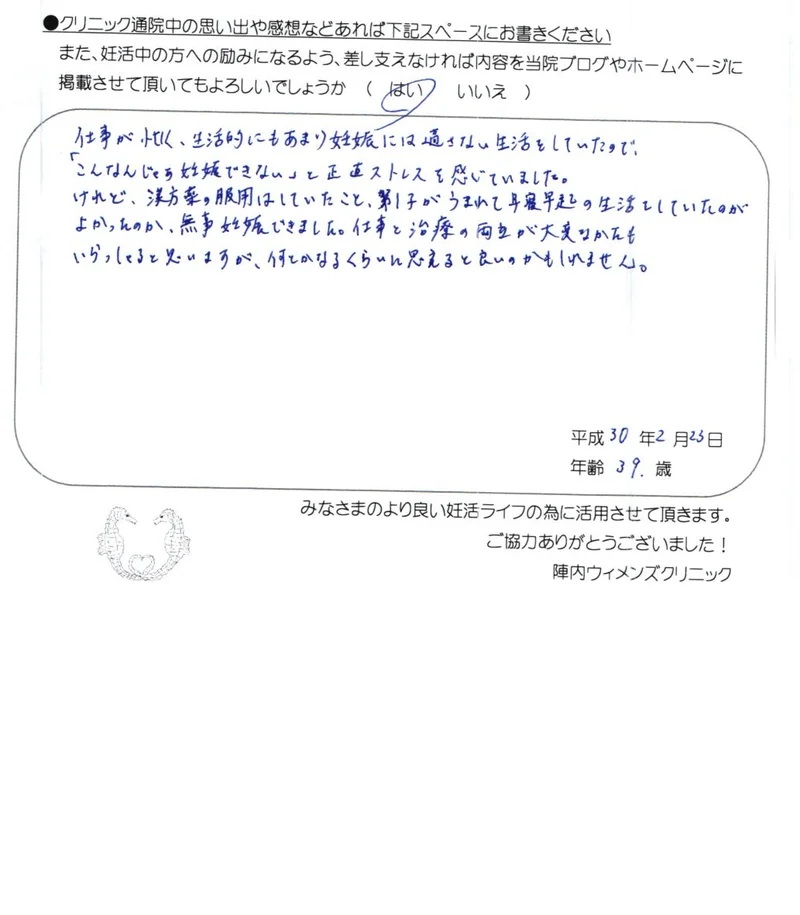 ●クリニック通院中の思い出や感想などあれば下記スペースにお書きください
また、妊活中の方への励みになるよう、差し支えなければ内容を当院ブログやホームページに
掲載させて頂いてもよろしいでしょうか （ はい いいえ ）
仕事が忙しく、生活的にもあまり妊娠には適さない生活をしていたので、
「こんなんじゃ妊娠できない」と正直ストレスを感じていました。
けれど、漢方薬の服用はしていたこと、第1子がうまれて早寝早起の生活をしていたのが
よかったのか、無事妊娠できました。仕事と治療の両立が大変なかたも
いらっしゃると思いますが、何とかなるくらいに思えると良いのかもしれません。
平成30年2月23日
年齢 39. 歳
みなさまのより良い妊活ライフの為に活用させて頂きます。
ご協力ありがとうございました！
陣内ウィメンズクリニック